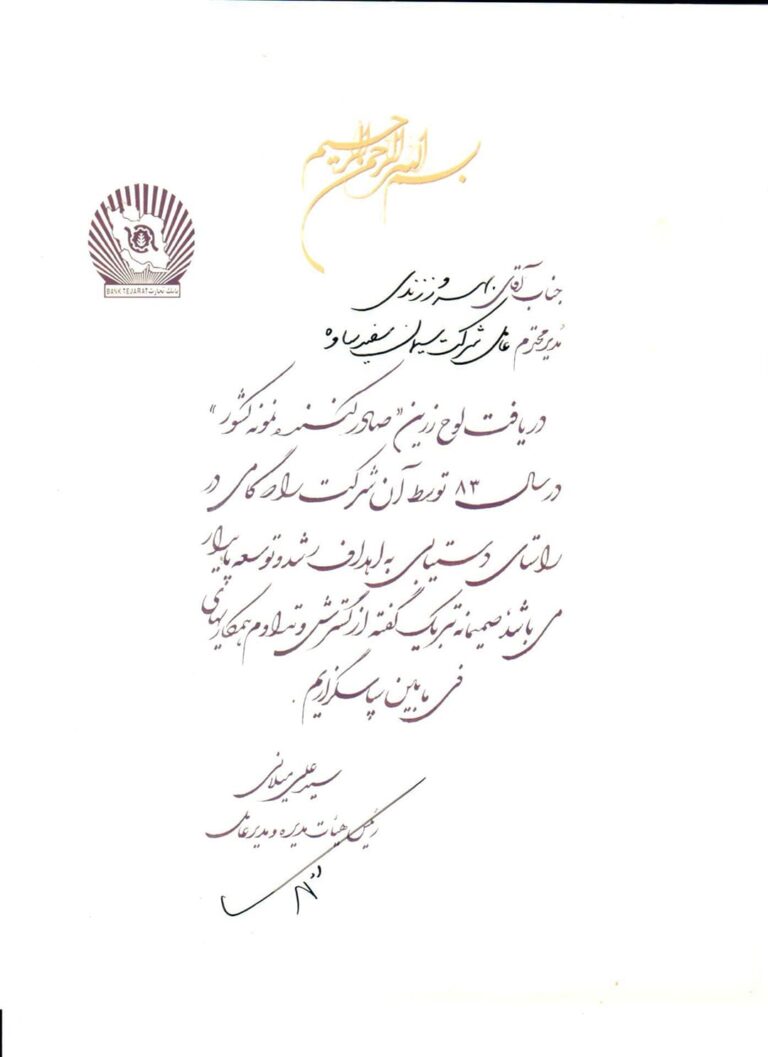 بسم الله الرحمن الرحیم
بانک تجارت BANK TEJARAT
جناب آقای بهروز زندی
مدیر محترم عامل شرکت سیمان سفید ساوه
دریافت لوح زرین «صادرکننده نمونه کشور»
در سال ۸۳ توسط آن شرکت را که گامی در
راستای دستیابی به اهداف رشد و توسعه پایدار
می باشد صمیمانه تبریک گفته از گسترش و تداوم همکاریهای
فی مابین سپاسگزاریم.
سید علی میلانی
رئیس هیأت مدیره و مدیرعامل